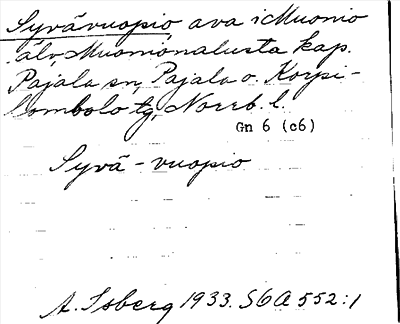 Syvävuopio, ava i Muonio
älv, Muonionalusta kap.
Pajala sn, Pajala o. Korpi-
lombolo tg, Norrb. l.
Gn 6 (c6)
Syvä-vuopio
A. Isberg 1933. S6A 552:1